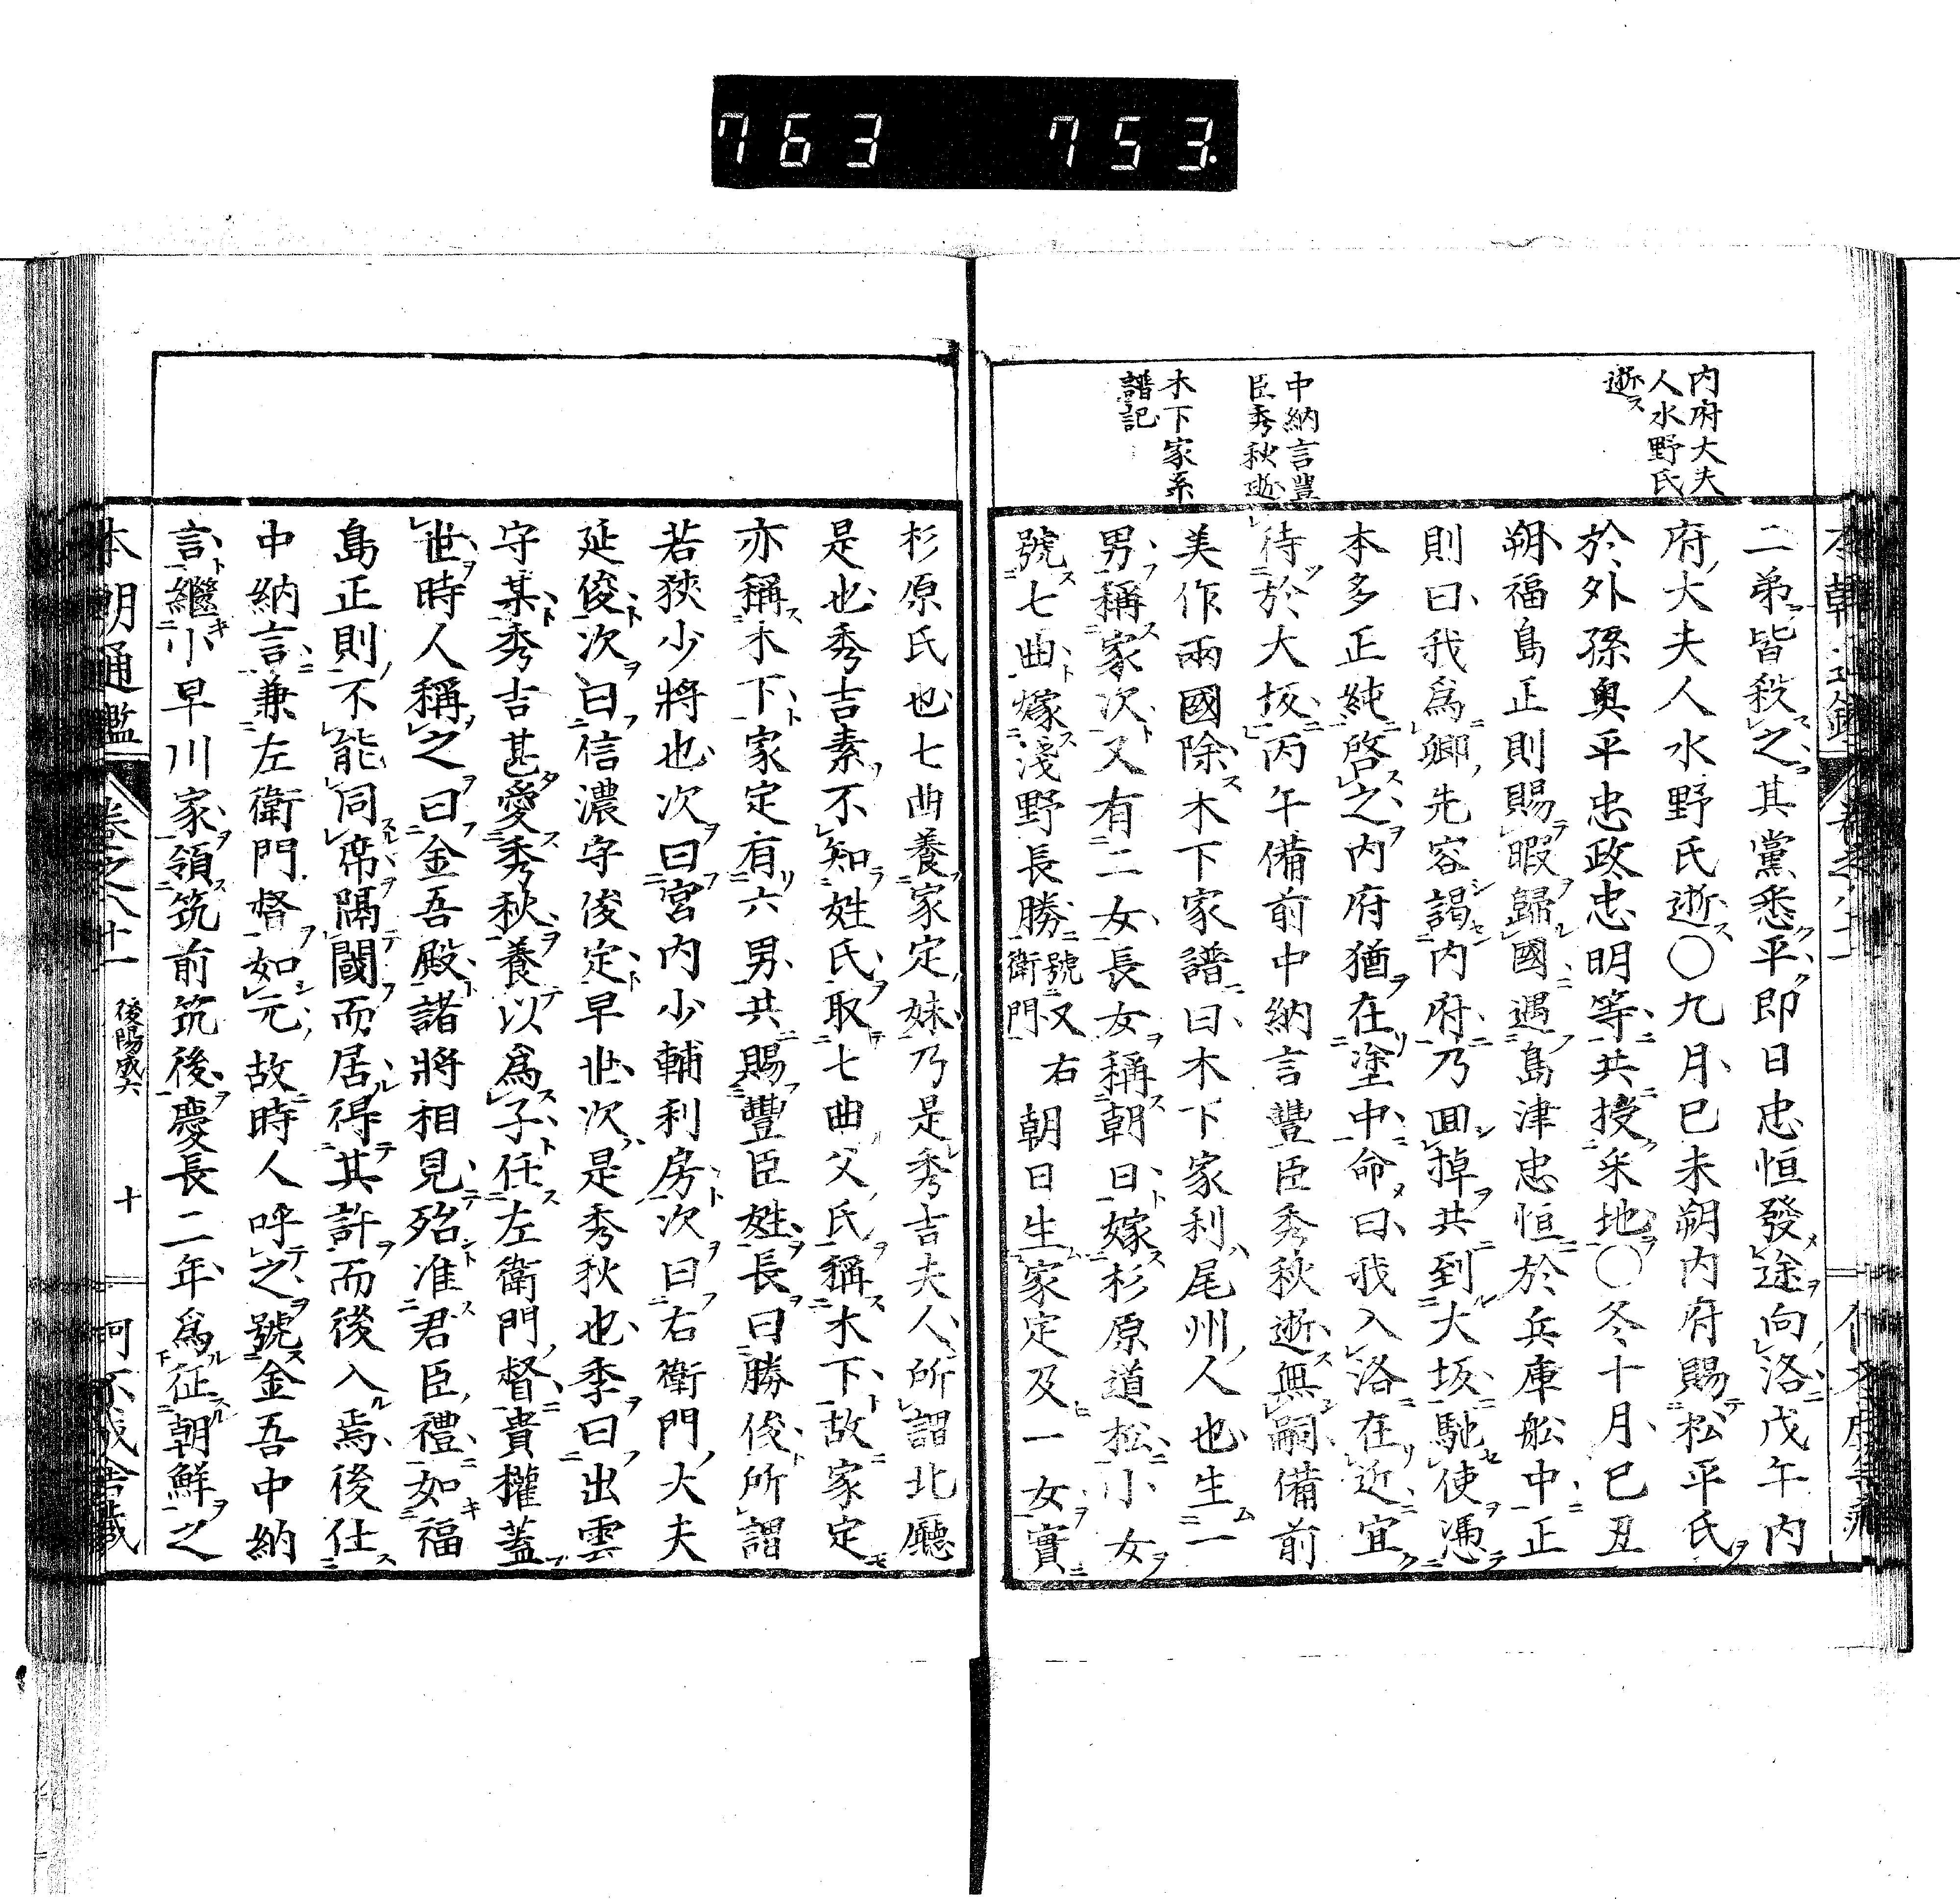 763 753.
内府大夫
人水野氏
逝ス
中納言豊
臣秀秋逝
木下家系
譜記
二弟皆殺之其黨悉平即日忠恒發途向洛戊午内
府大夫人水野氏逝〇九月己未朔内府賜松平氏
於外孫奥平忠政忠明等共授采地〇冬十月己丑
朔福島正則賜暇歸國遇島津忠恒於兵庫舩中正
則曰我爲卿先容謁内府乃回掉共到大坂馳使憑
本多正純啓之内府猶在塗中命曰我入洛在近宜
待於大坂丙午備前中納言豐臣秀秋逝無嗣備前
美作兩國除木下家譜曰木下家利尾州人也生一
男稱家次又有二女長女稱朝日嫁杉原道松小女
號七曲嫁淺野長勝號又右衛門朝日生家定及一女實
杉原氏也七曲養家定妹乃是秀吉夫人所謂北廳
是也秀吉素不知姓氏取七曲父氏稱木下故家定
亦稱木下家定有六男共賜豐臣姓長曰勝俊所謂
若狹少將也次曰宮内少輔利房次曰右衛門大夫
延俊次曰信濃守俊定早世次是秀秋也季曰出雲
守某秀吉甚愛秀秋養以爲子任左衛門督貴權蓋
世時人稱之曰金吾殿諸將相見殆准君臣禮如福
島正則不能同席隔閾而居得其許而後入焉後仕
中納言兼左衛門督如元故時人呼之號金吾中納
言繼小早川家領筑前筑後慶長二年爲征朝鮮之
本朝通鑑 卷之八十一 後陽成六 十